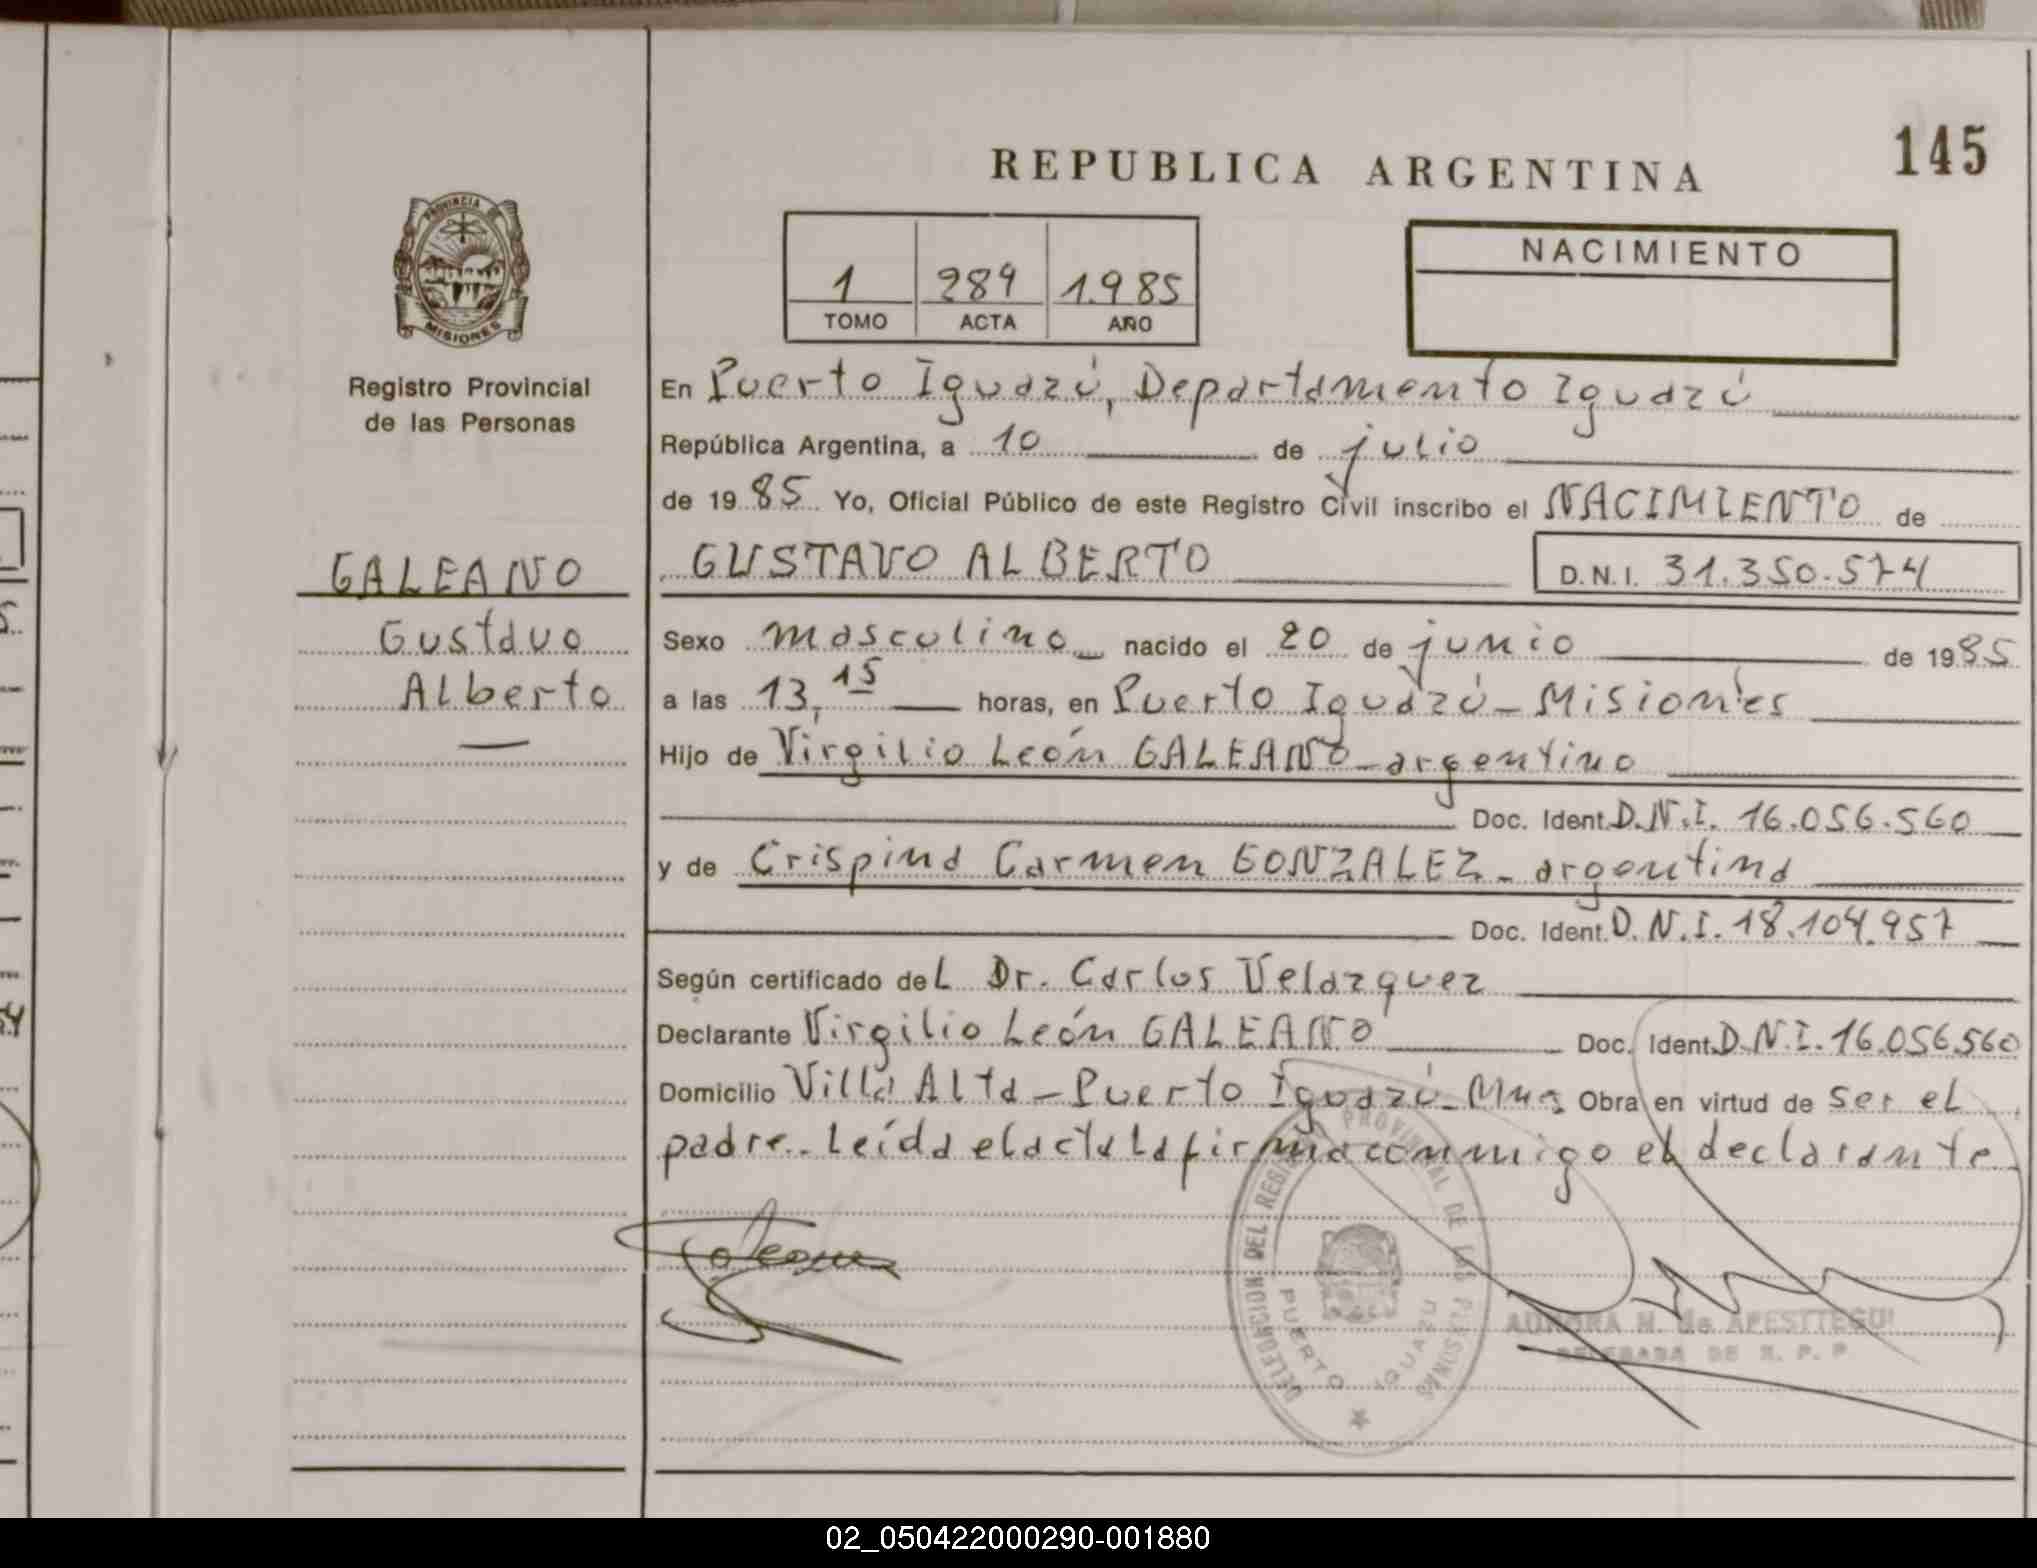 REPUBLICA ARGENTINA
145
PROVINCIA DE
MISIONES
Registro Provincial
de las Personas
1 289 1.985
TOMO ACTA AÑO
NACIMIENTO
En Puerto Iguazú, Departamento Iguazú
República Argentina, a 10 de julio
de 1985 Yo, Oficial Público de este Registro Civil inscribo el NACIMIENTO de
GALEANO
Gustavo
Alberto
GUSTAVO ALBERTO D.N.I. 31.350.574
Sexo masculino nacido el 20 de junio de 1985
a las 13,15 horas, en Puerto Iguazú - Misiones
Hijo de Virgilio León GALEANO - argentino
Doc. Ident. D.N.I. 16.056.560
y de Crispina Carmen GONZALEZ - argentina
Doc. Ident. D.N.I. 18.104.957
Según certificado del Dr. Carlos Velazquez
Declarante Virgilio León GALEANO Doc. Ident. D.N.I. 16.056.560
Domicilio Villa Alta - Puerto Iguazú - Mnes Obra en virtud de ser el
padre.. Leída el acta la firma conmigo el declarante
DELEGACION DEL REGISTRO PROVINCIAL DE LAS PERSONAS
PUERTO IGUAZU
AURORA H. de APESTTEGUI
DELEGADA DE R. P. P.
02_050422000290-001880